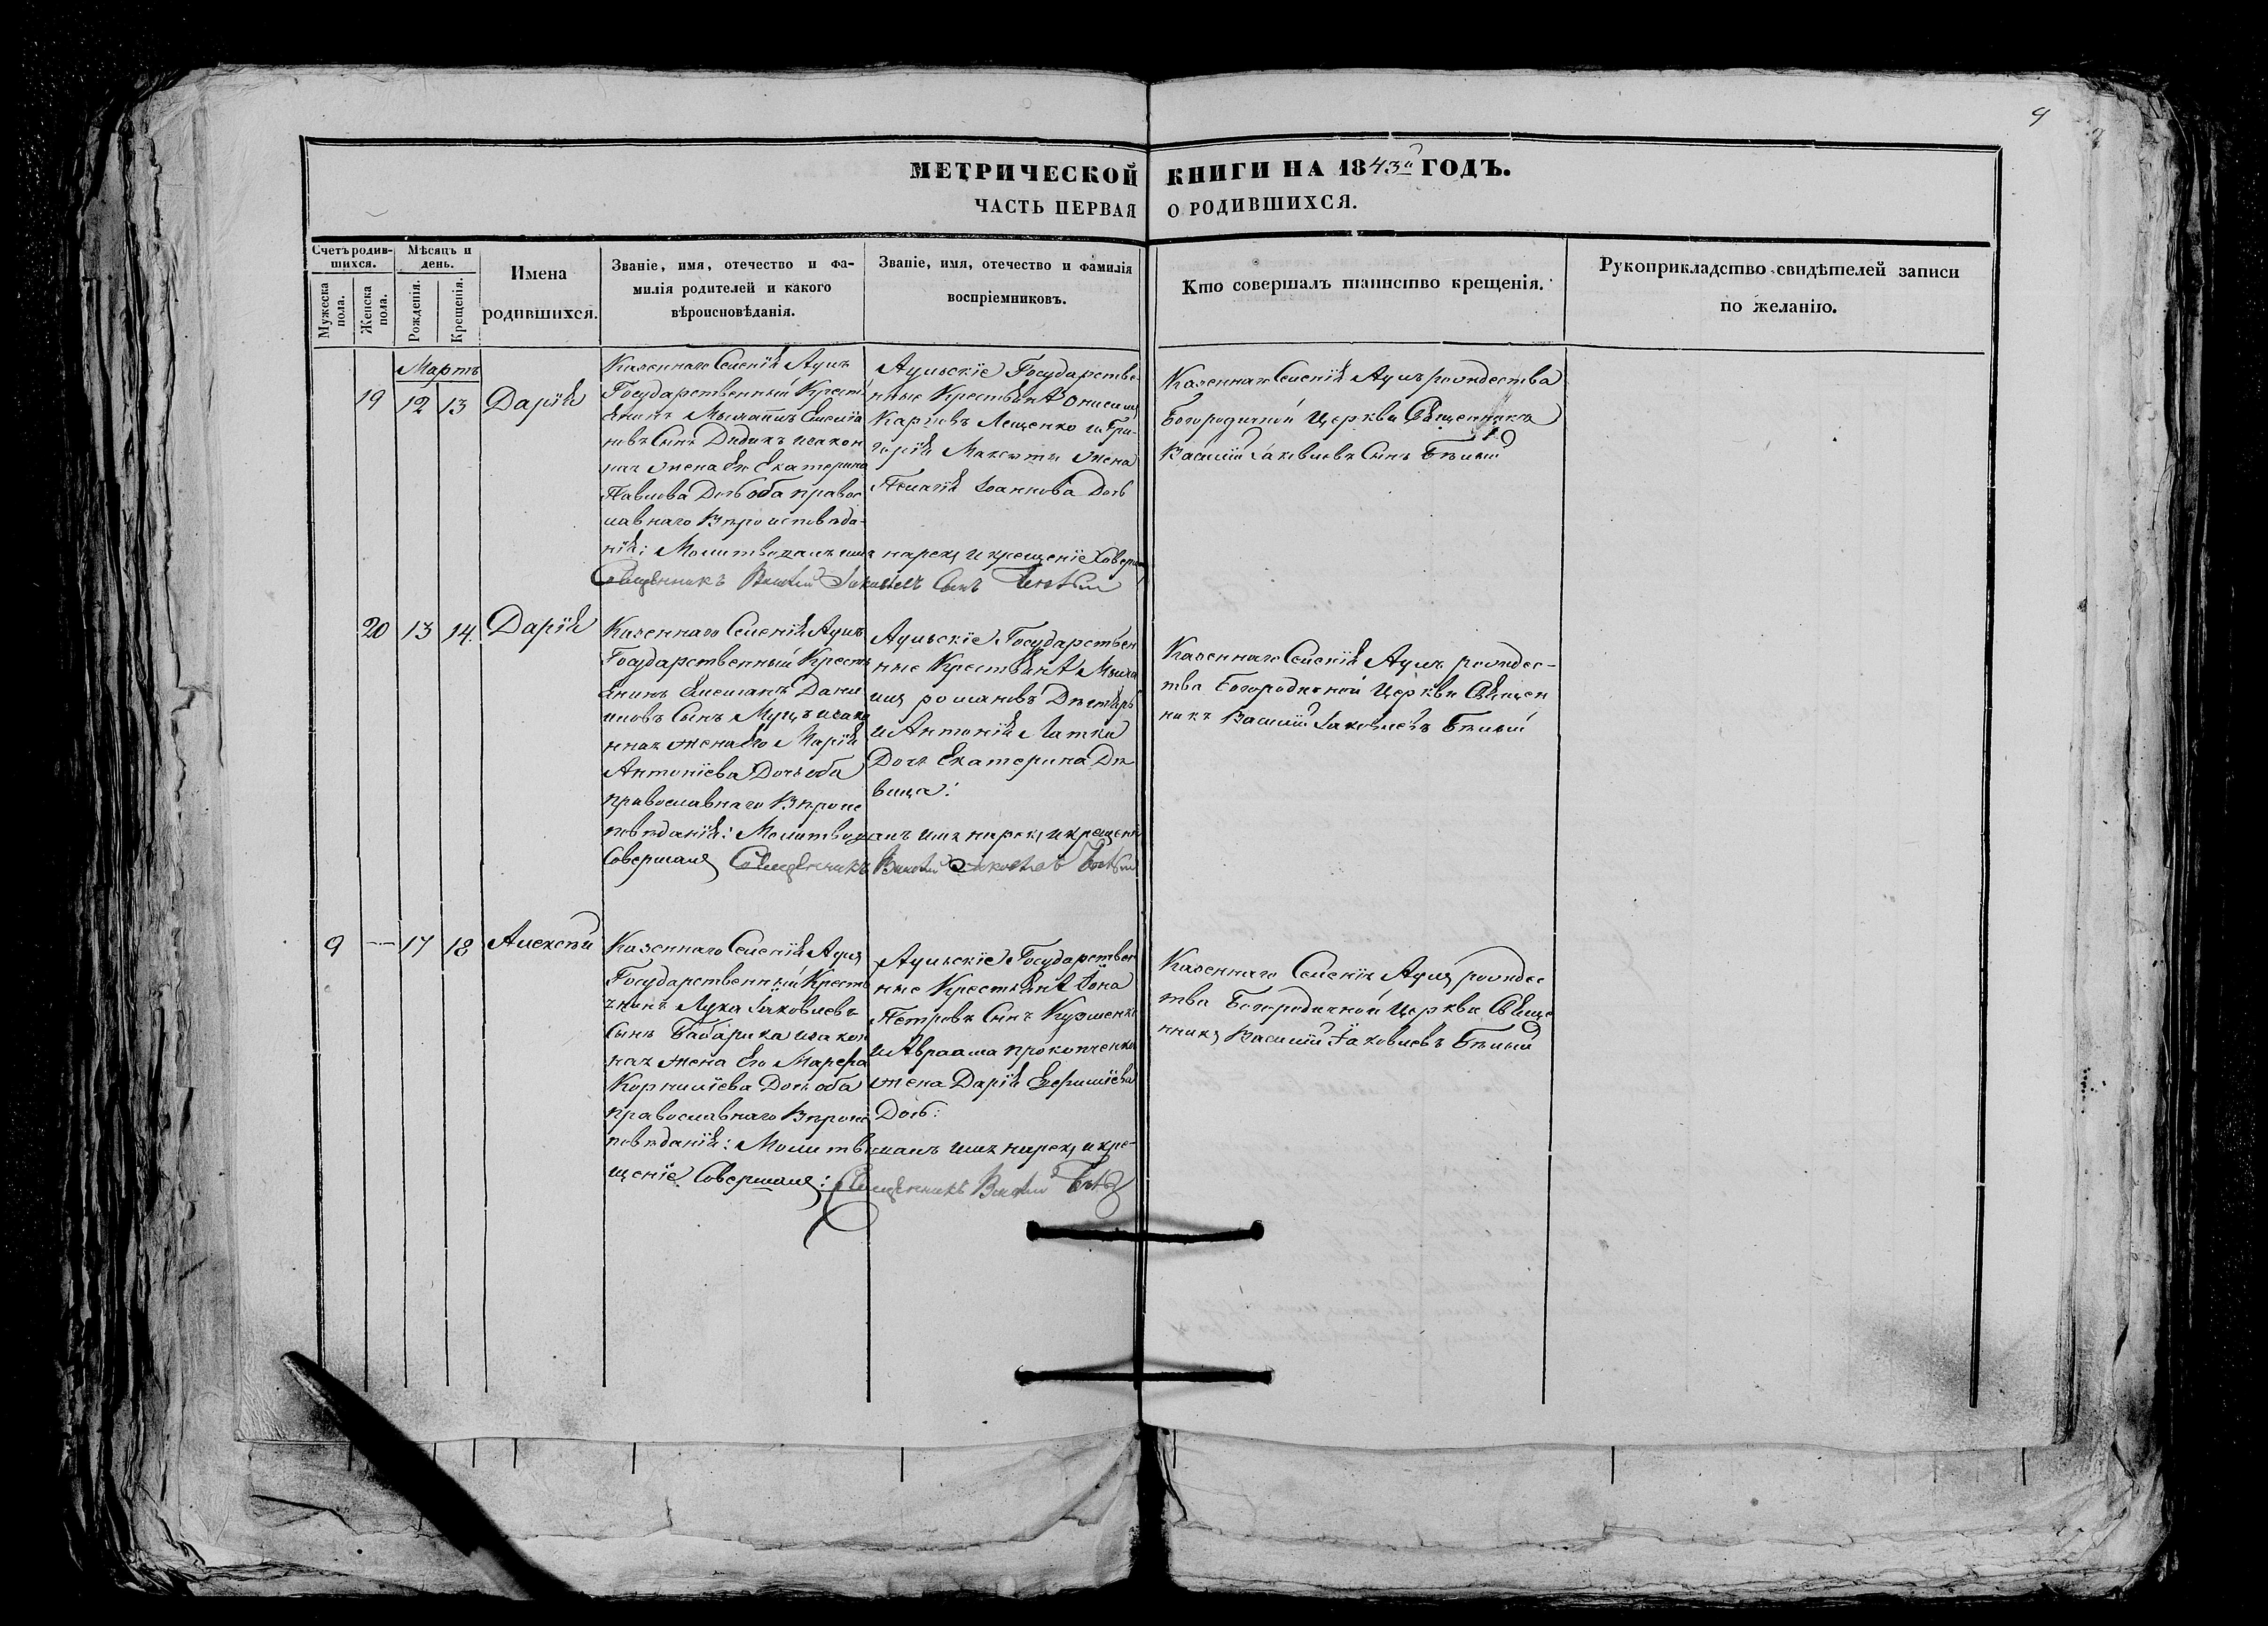 9
МЕТРИЧЕСКОЙ КНИГИ НА 1843й ГОДЪ.
ЧАСТЬ ПЕРВАЯ О РОДИВШИХСЯ.
Счетъ родившихся.
Мужеска пола.
Женска пола.
Мѣсяцъ и день.
Рожденія.
Крещенія.
Имена родившихся.
Званіе, имя, отечество и фа-
милія родителей и какого
вѣроисповѣданія.
Званіе, имя, отечество и фамилія
воспріемниковъ.
Кто совершалъ таинство крещенія.
Рукоприкладство свидѣтелей записи
по желанію.
Мартъ
19 12 13 Дарія
Казеннаго Селенія Аулъ
Государственный Крестъ
янинъ
новъ Сынъ Дидикъ и закон
ная жена Его Екатерина
Павлова Дочь оба правос
лавнаго Вѣроисповѣда-
нія: Молитводалъ имя нарекъ и крещеніе Соверш
Священникъ Василій Іаковлевъ Сынъ Бѣлый
Аульскіе Государстве-
нные Крестьяне Онисимъ
Карповъ Лещенко и Гри-
горія жена
Пелагія Іоаннова Дочь
Казеннаго Селенія Аулъ рождества
Богородичной Церкви Священникъ
Василій Іаковлевъ Сынъ Бѣлый
20 13 14 Дарія
Казеннаго Селенія Аулъ
Государственный Крестъ
янинъ Емеліанъ Дани
иловъ Сынъ и зако
нная жена Его Марія
Антоніева Дочь оба
православнаго Вѣроис
повѣданія: Молитводалъ имя нарекъ и крещені
Совершалъ Священникъ Василій Іаковлевъ Бѣлый
Аульскіе Государствен
нные Крестьяне Миха
илъ романовъ
и Антонія
Дочь Екатерина Дѣ
вица:
Казеннаго Селенія Аулъ рождес-
тва Богородичной Церкви Священ
никъ Василій Іаковлевъ Бѣлый
9 17 18 Алексѣй
Казеннаго Селенія Аулъ
Государственный Крестъ
янинъ Лука Іаковлевъ
Сынъ Бабарика и закон
ная жена Его Марѳа
Корниліева Дочь оба
православнаго Вѣроис
повѣданія: Молитводалъ имя нарекъ и кре-
щеніе Совершалъ: Священникъ Василій Бѣлый
Аульскіе Государствен
ные Крестьяне Іона
Петровъ Сынъ Кузменко
и Авраама прокопченка
жена Дарія Ефиміева
Дочь:
Казеннаго Селенія Аулъ рождес
тва Богородичной Церкви Свяще
нникъ Василій Іаковлевъ Бѣлый